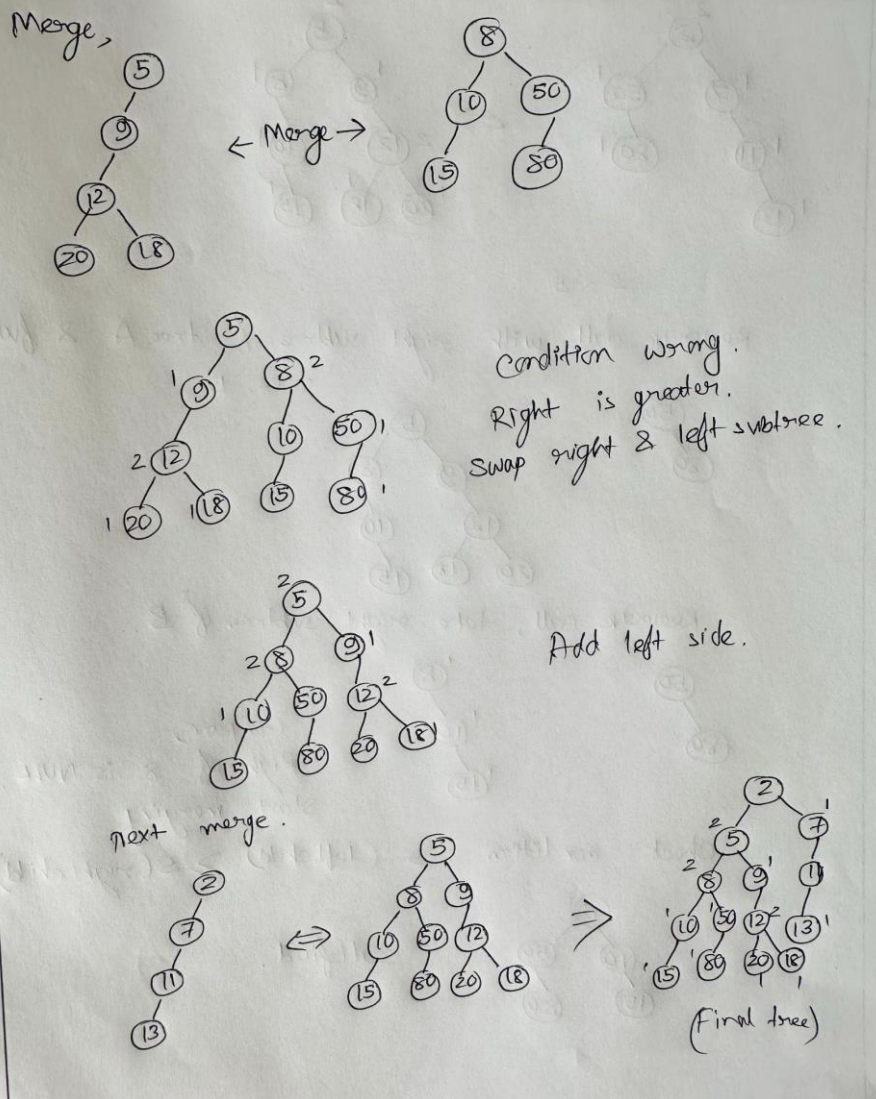 Merge,
5
8
9
10
50
← Merge →
12
15
80
20
18
5
1 9
8 2
2 12
10
50 1
1 20
1 18
15
80 1
Condition wrong.
Right is greater.
Swap right & left subtree.
2 5
2 8
9 1
1 10
50
12 2
15
80
20
18 1
Add left side.
next merge.
2
7
11
13
⇔
5
8
9
10
50
12
15
80
20
18
⇒
2
2 5
7 1
2 8
9 1
11
1 10
1 50
12 2
13 1
1 15
1 80
20 1
18 1
(Final tree)